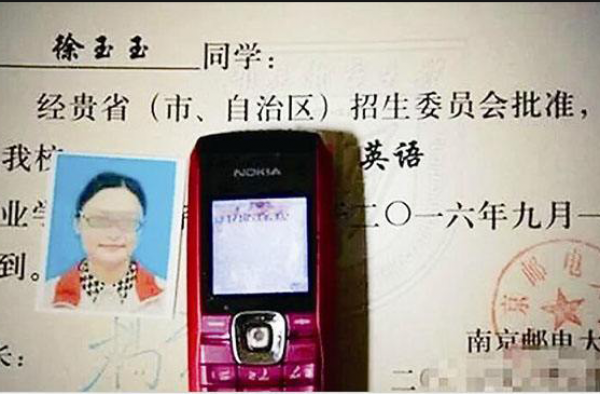 徐玉玉 同学：
经贵省（市、自治区）招生委员会批准，
我校 英语
业学 二〇一六年九月一
到。
NOKIA
京邮电
南京邮电大
长： 杨
二〇